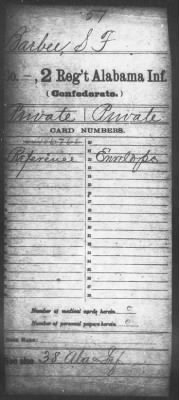 57
Barbee S F
Co. —, 2 Reg't Alabama Inf.
(Confederate.)
Private | Private
CARD NUMBERS.
Reference Envelope
Number of medical cards herein 0
Number of personal papers herein 0
Book Mark:
See also 38 Ala Inf